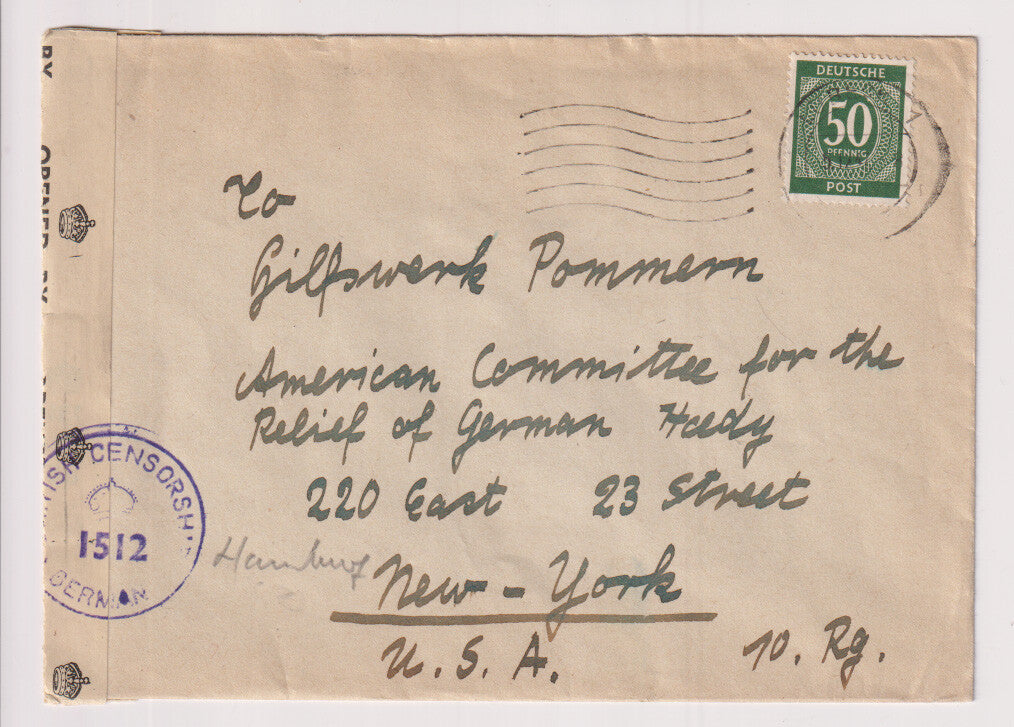 BY
OPENED BY
DEUTSCHE
50
PFENNIG
POST
To
Hilfswerk Pommern
American Committee for the
Relief of German Needy
220 East 23 Street
Hamburg
New-York
U.S.A. 10. Rg.
CENSORSHI
1512
GERMAN